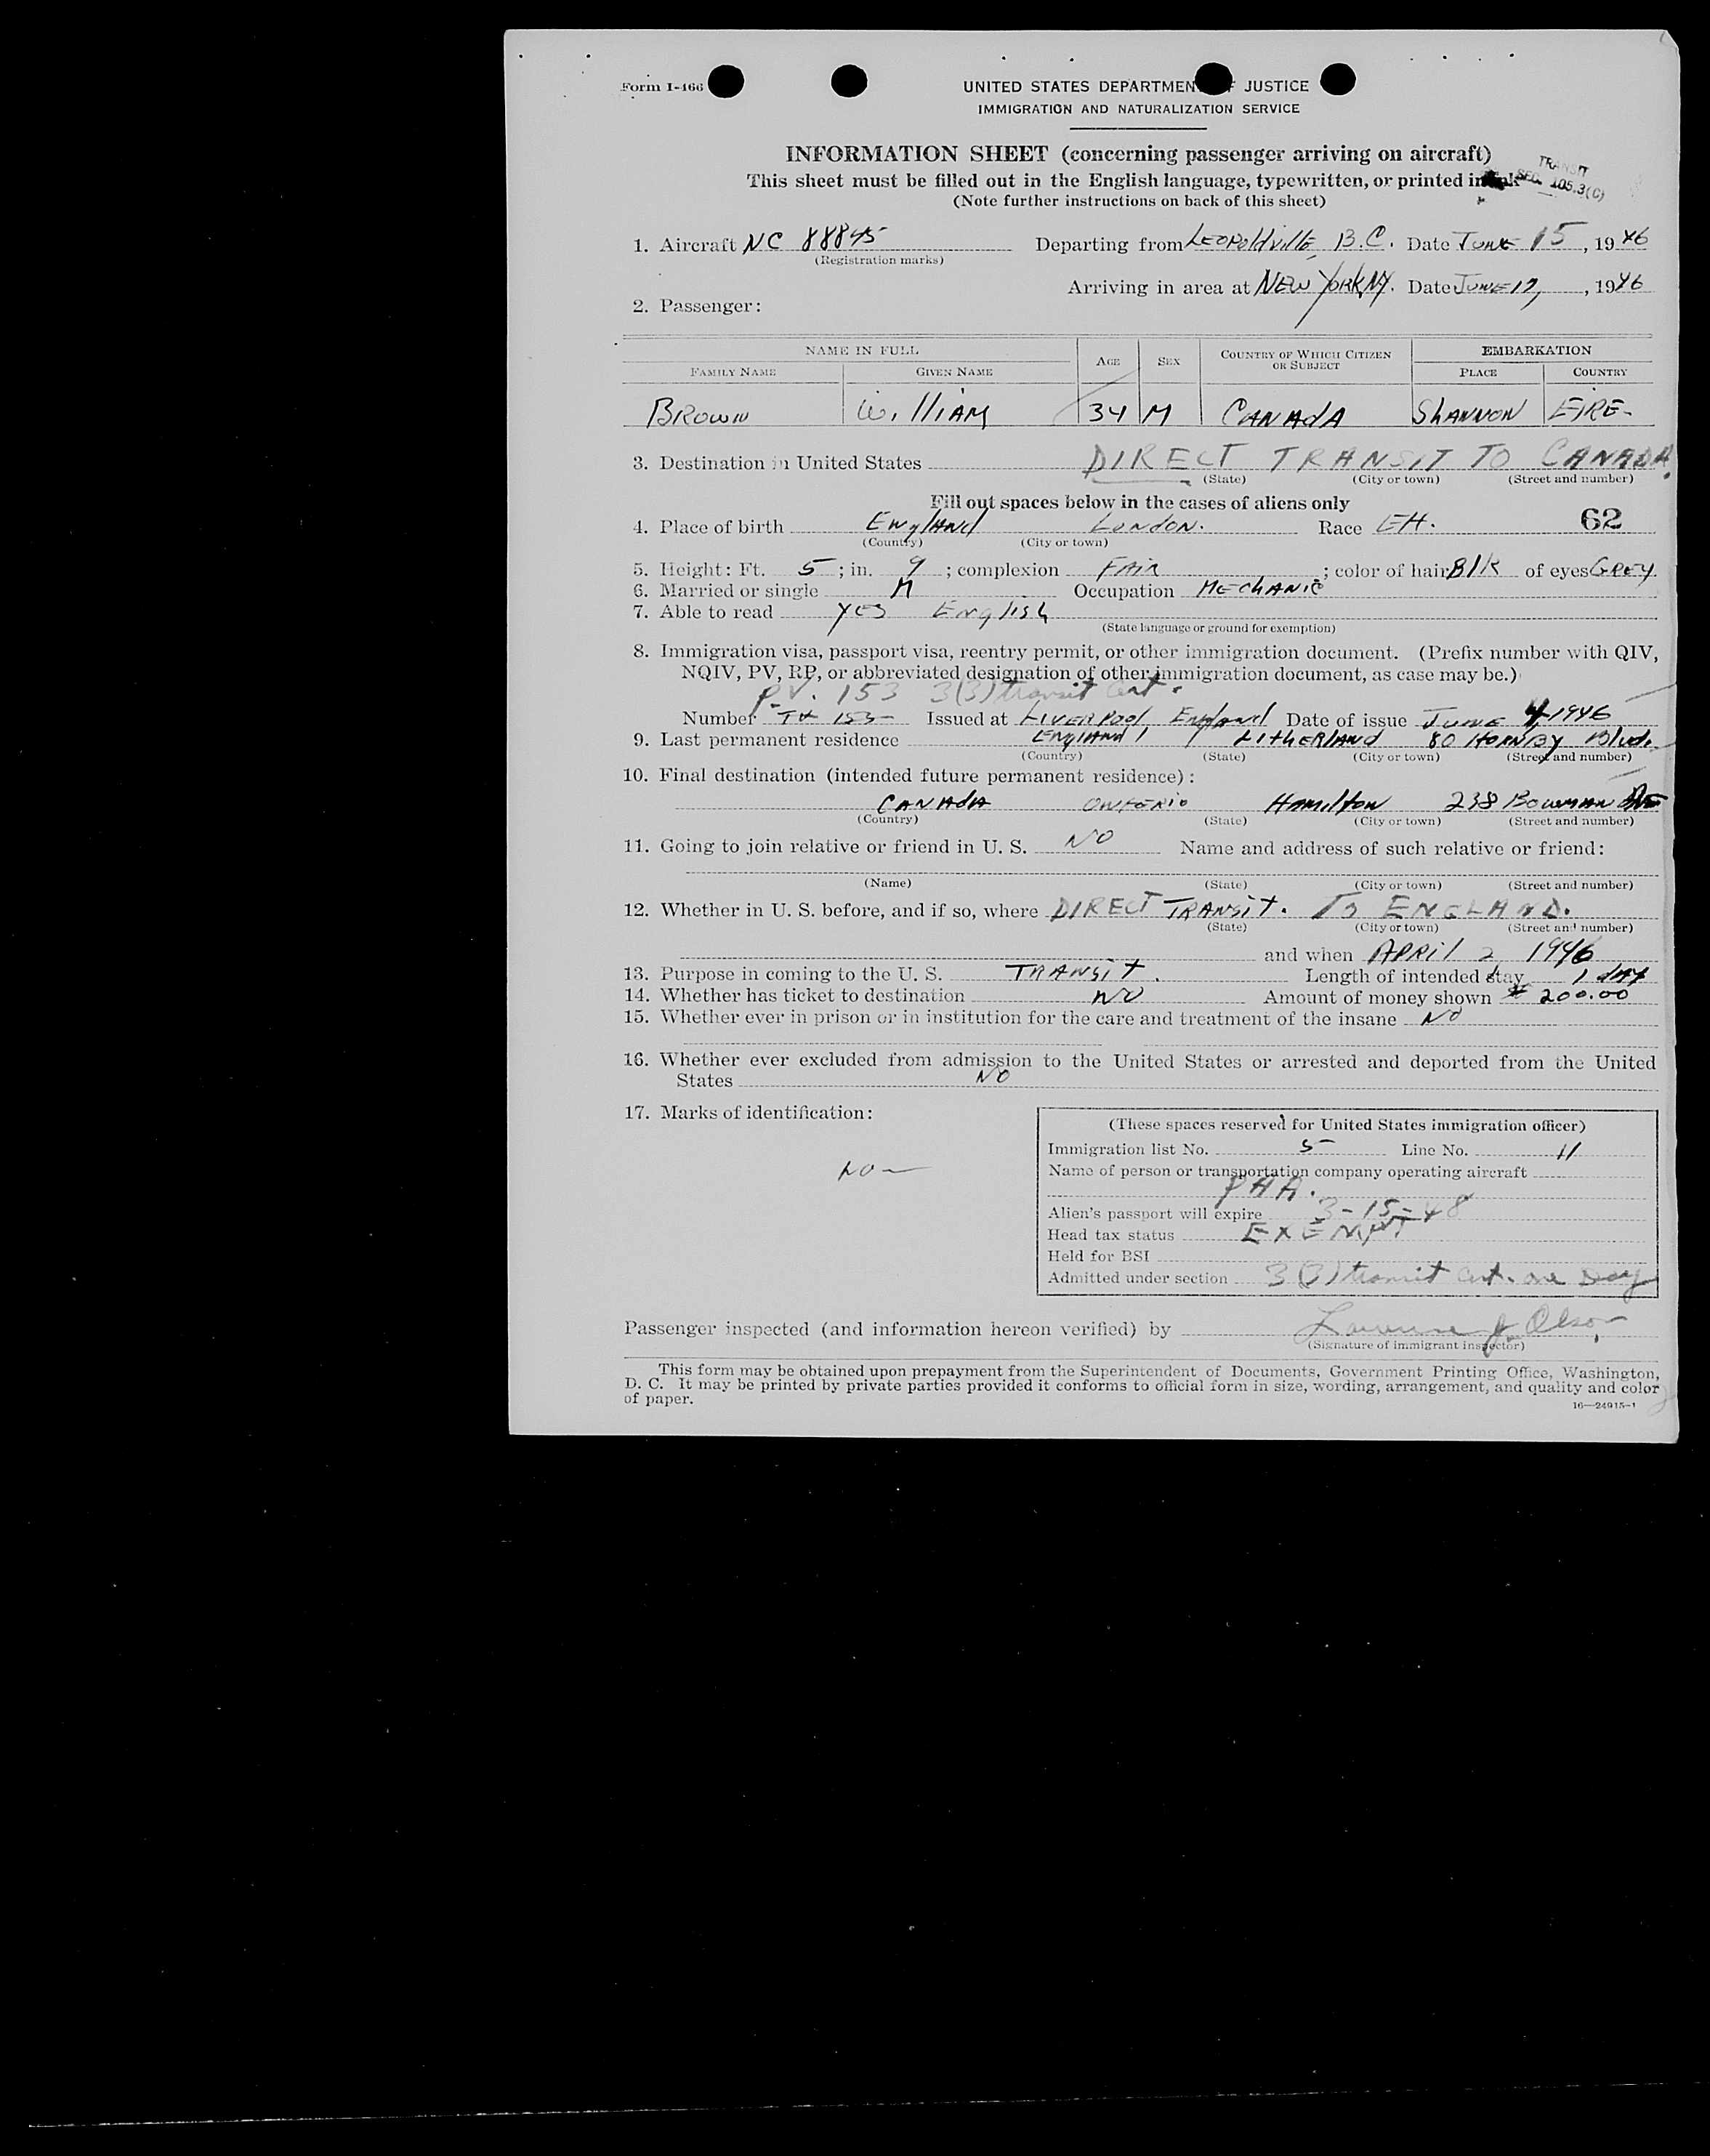 Form I-466
UNITED STATES DEPARTMENT OF JUSTICE
IMMIGRATION AND NATURALIZATION SERVICE
INFORMATION SHEET (concerning passenger arriving on aircraft)
TRANSIT
SEC. 105.3(C)
This sheet must be filled out in the English language, typewritten, or printed in ink
(Note further instructions on back of this sheet)
1. Aircraft NC 88845 Departing from LEOPOldville, B.C. Date JUNE 15, 1946
(Registration marks)
Arriving in area at NEW YORK, NY. Date JUNE 17, 1946
2. Passenger:
NAME IN FULL AGE SEX COUNTRY OF WHICH CITIZEN OR SUBJECT EMBARKATION
FAMILY NAME GIVEN NAME PLACE COUNTRY
BROWN WilliAM 34 M CANAdA SHANNON EIRE-
3. Destination in United States DIRECT TRANSIT TO CANADA.
(State) (City or town) (Street and number)
Fill out spaces below in the cases of aliens only
4. Place of birth EnglANd LONdON. Race EH. 62
(Country) (City or town)
5. Height: Ft. 5; in. 9; complexion FAIR; color of hair Blk of eyes GREY
6. Married or single M Occupation MEchANic
7. Able to read YES English
(State language or ground for exemption)
8. Immigration visa, passport visa, reentry permit, or other immigration document. (Prefix number with QIV,
NQIV, PV, RP, or abbreviated designation of other immigration document, as case may be.)
P.V. 153 3(3) transit Cert.
Number 153 Issued at LIVERPOOl England Date of issue JUNE 4, 1946
9. Last permanent residence EnglANd LitHERlANd 80 HORNBY Blvd.
(Country) (State) (City or town) (Street and number)
10. Final destination (intended future permanent residence):
CANAdA ONTERio HAMilton 238 BOWMAN Ave
(Country) (State) (City or town) (Street and number)
11. Going to join relative or friend in U. S. NO Name and address of such relative or friend:
(Name) (State) (City or town) (Street and number)
12. Whether in U. S. before, and if so, where DIRECT TRANSIT. TO ENGLAND.
(State) (City or town) (Street and number)
and when APRil 2 1946
13. Purpose in coming to the U. S. TRANSIT. Length of intended stay 1 dAY
14. Whether has ticket to destination NO Amount of money shown $ 200.00
15. Whether ever in prison or in institution for the care and treatment of the insane NO
16. Whether ever excluded from admission to the United States or arrested and deported from the United
States NO
17. Marks of identification:
NO
(These spaces reserved for United States immigration officer)
Immigration list No. 5 Line No. 11
Name of person or transportation company operating aircraft
PAA.
Alien's passport will expire 3-15-48
Head tax status EXEMPT
Held for BSI
Admitted under section 3(3) transit cert. one Day
Passenger inspected (and information hereon verified) by Lawrence J. Olson
(Signature of immigrant inspector)
This form may be obtained upon prepayment from the Superintendent of Documents, Government Printing Office, Washington,
D. C. It may be printed by private parties provided it conforms to official form in size, wording, arrangement, and quality and color
of paper.
16—24915-1